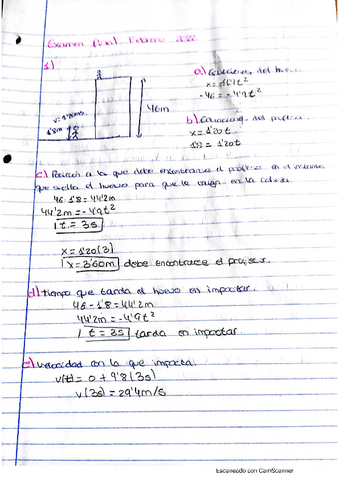 Examen final Febrero 2022
1)
a) Ecuaciones del huevo
-46 = -4'9t²
v=1'20m/s
1'8m
46m
b) Ecuaciones del profesor
x=1'20t
1'8=1'20t
c) Posición a la que debe encontrarse el profesor en el instante
que suelta el huevo para que le caiga en la cabeza.
46-1'8=44'2m
44'2m=-4'9t²
t=3s
x=1'20(3)
x=3'60m debe encontrarse el profesor.
d) tiempo que tarda el huevo en impactar.
46-1'8=44'2m
44'2m=-4'9t²
t=3s tarda en impactar.
e) Velocidad con la que impacta.
v(t)=0+9'8(3s)
v(3s)=29'4m/s
Escaneado con CamScanner